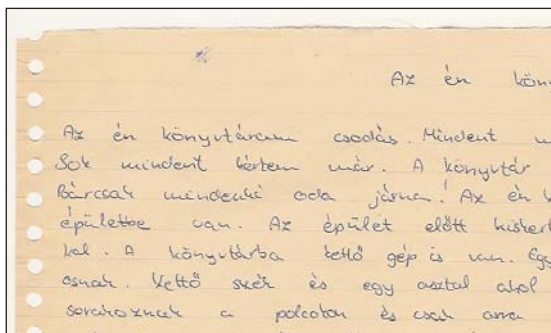 Az én köny
Az én könyvtáram csodás. Mindent
Sok mindent kértem már. A könyvtár
Bárcsak mindenki oda járna! Az én
épületbe van. Az épület előtt kiskert
kal. A könyvtárba kettő gép is van. Egy
osnak. Kettő szék és egy asztal ahol
sorakoznak a polcokon és csak arra